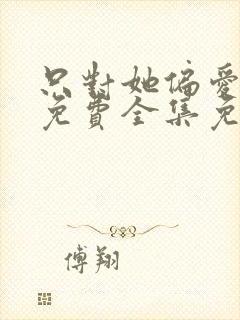 只對她偏愛
免費全集免
傅翔